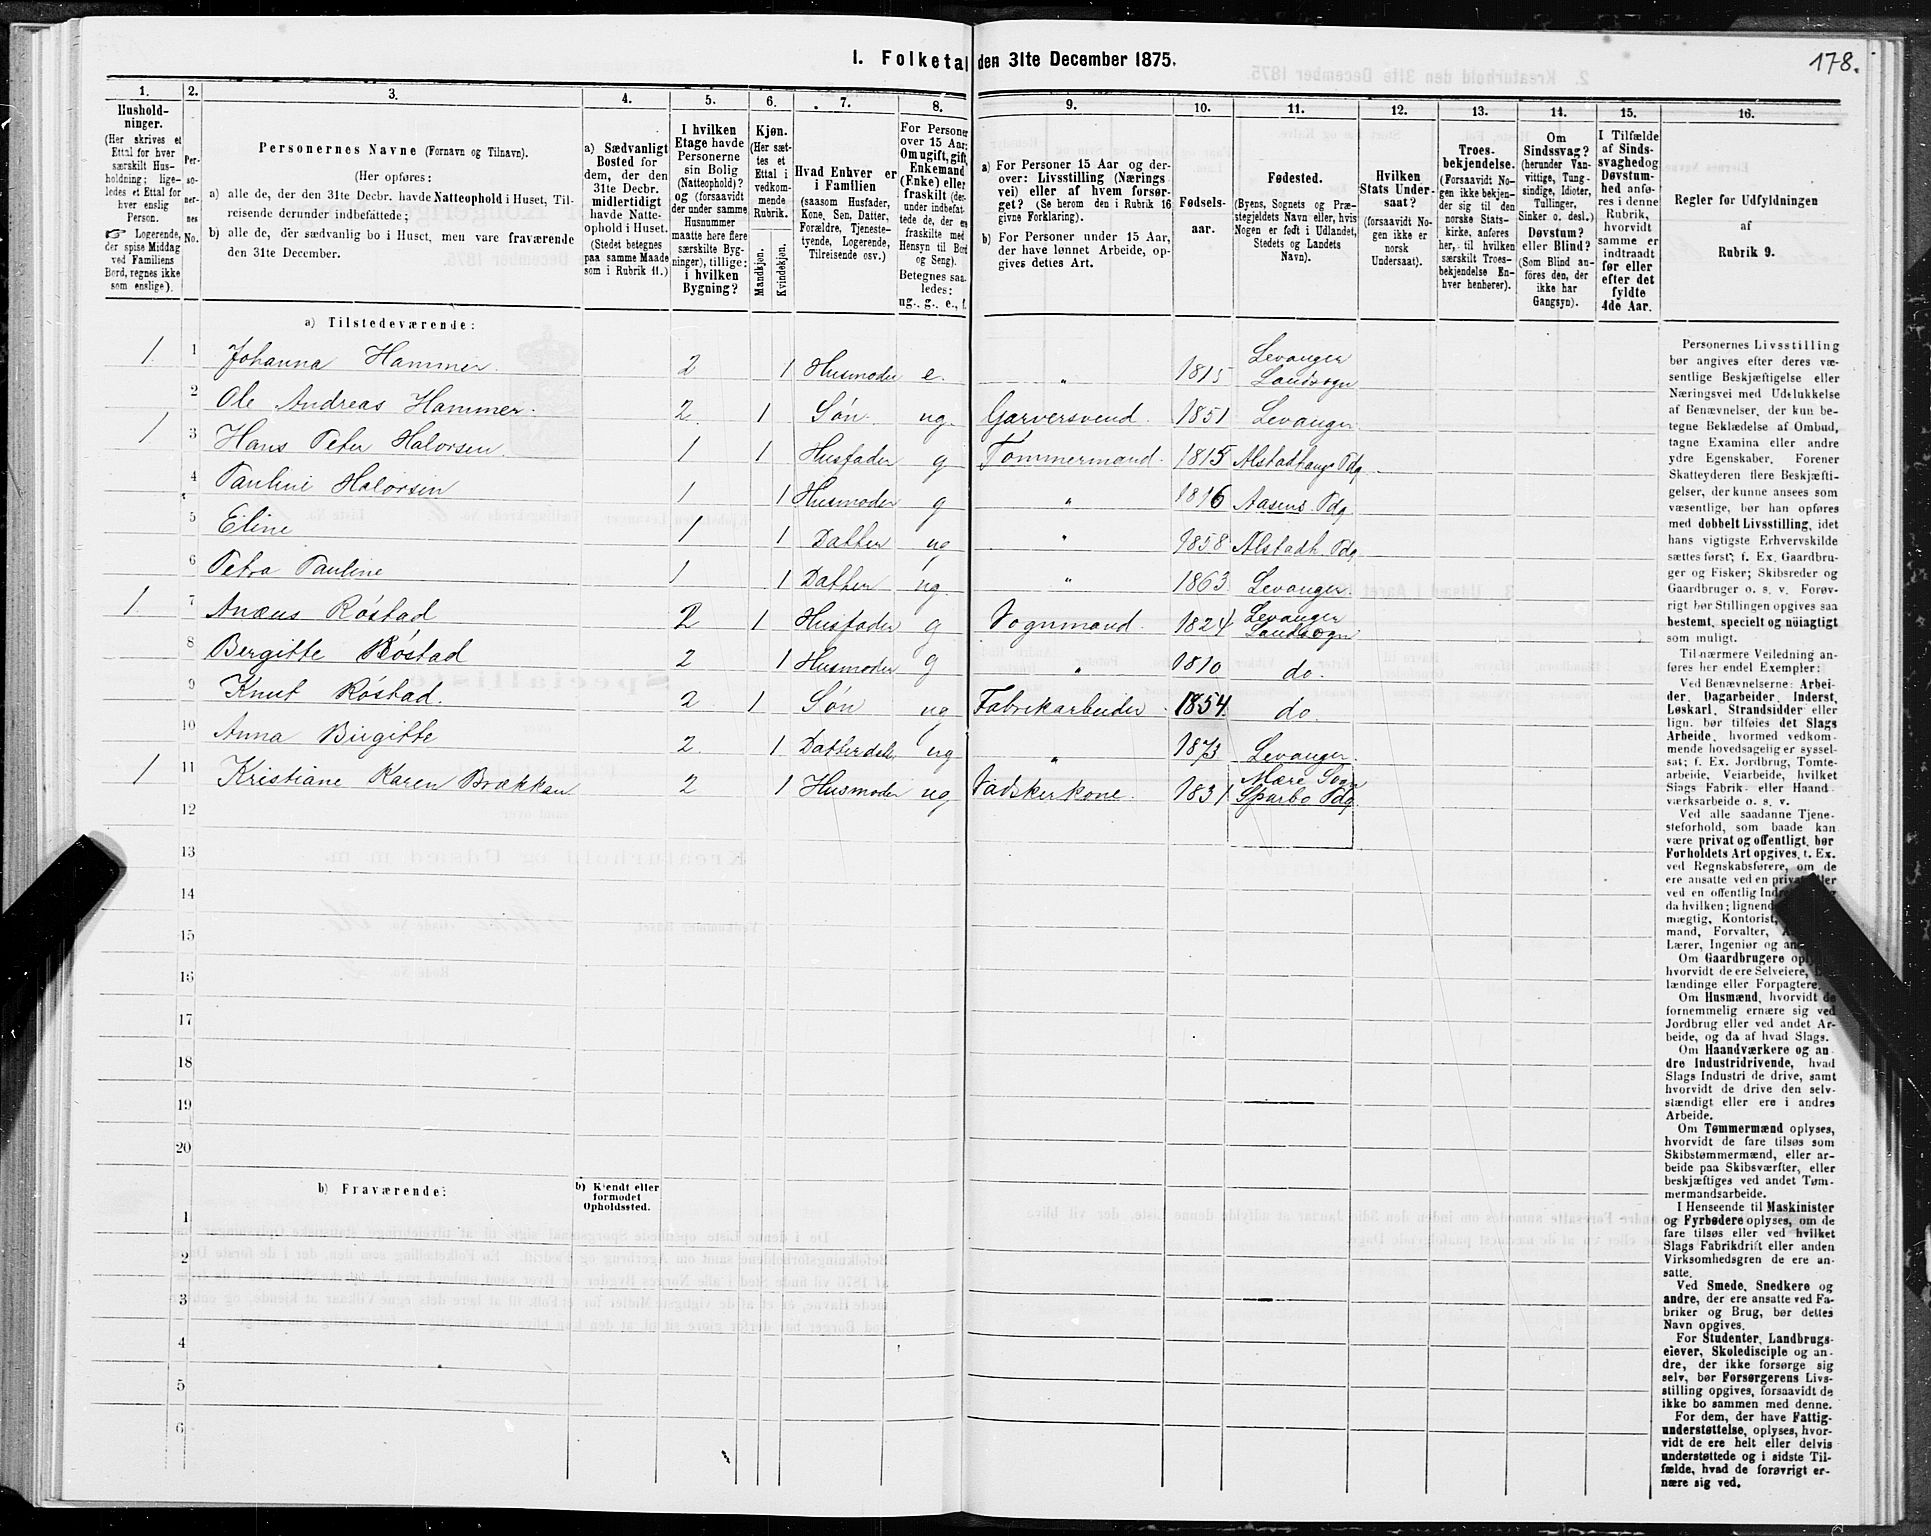 178.
I. Folketal den 31te December 1875.
1.
Hushold-
ninger.
(Her skrives et
Ettal for hver
særskilt Hus-
holdning; lige-
ledes et Ettal for
hver enslig
Person.
☞ Logerende,
der spise Middag
ved Familiens
Bord, regnes ikke
som enslige).
2.
Per-
so-
ner-
nes
No.
3.
Personernes Navne (Fornavn og Tilnavn).
(Her opføres:
a) alle de, der den 31te Decbr. havde Natteophold i Huset, Til-
reisende derunder indbefattede;
b) alle de, der sædvanlig bo i Huset, men vare fraværende
den 31te December.
4.
a) Sædvanligt
Bosted for
dem, der den
31te Decbr.
midlertidigt
havde Natte-
ophold i Huset.
(Stedet betegnes
paa samme Maade
som i Rubrik 11.)
5.
I hvilken
Etage havde
Personerne
sin Bolig
(Natteophold)?
og (forsaavidt
der under samme
Husnummer
maatte høre flere
særskilte Byg-
ninger), tillige:
i hvilken
Bygning?
6.
Kjøn.
(Her sæt-
tes et
Ettal i
vedkom-
mende
Rubrik.
Mandkjøn.
Kvindekjøn.
7.
Hvad Enhver er
i Familien
(saasom Husfader,
Kone, Søn, Datter,
Forældre, Tjeneste-
tyende, Logerende,
Tilreisende osv.)
8.
For Personer
over 15 Aar:
Om ugift, gift,
Enkemand
(Enke) eller
fraskilt (der-
under indbefat-
tede de, der ere
fraskilte med
Hensyn til Bord
og Seng).
Betegnes saa-
ledes:
ug., g., e., f.
9.
a) For Personer 15 Aar og der-
over: Livsstilling (Nærings-
vei) eller af hvem forsør-
get? (Se herom den i Rubrik 16
givne Forklaring).
b) For Personer under 15 Aar,
der have lønnet Arbeide, op-
gives dettes Art.
10.
Fødsels-
aar.
11.
Fødested.
(Byens, Sognets og Præ-
stegjeldets Navn eller, hvis
Nogen er født i Udlandet,
Stedets og Landets
Navn).
12.
Hvilken
Stats Under-
saat?
(forsaavidt No-
gen ikke er
norsk
Undersaat).
13.
Troes-
bekjendelse.
(Forsaavidt No-
gen ikke bekjen-
der sig til den
norske Stats-
kirke, anføres
her, til hvilken
særskilt Troes-
bekjendelse En-
hver henhører).
14.
Om
Sindssvag?
(herunder Van-
vittige, Tung-
sindige, Idioter,
Tullinger,
Sinker o. desl.)
Døvstum?
eller Blind?
(Som Blind an-
føres den, der
ikke har
Gangsyn).
15.
I Tilfælde
af Sinds-
svaghed og
Døvstum-
hed anfø-
res i denne
Rubrik,
hvorvidt
samme er
indtraadt
før eller
efter det
fyldte
4de Aar.
16.
Regler for Udfyldningen
af
Rubrik 9.
a) Tilstedeværende:
1 1 Johanna Hammer. 2 1 Husmoder e. " 1815 Levanger Landsogn
2 Ole Andreas Hammer. 2. 1 Søn. ug. Garversvend. 1851 Levanger.
1 3 Hans Peter Halorsen. 1 1 Husfader g Tømmermand. 1815 Alstadhaugs Pdg
4 Pauline Halorsen 1 1 Husmoder g " 1816 Aasens Pdg.
5 Eline 1 1 Datter ug " 1858 Alstadh. Pdg
6 Petra Pauline 1 1 Datter ug. " 1863 Levanger.
1 7 Anæus Röstad 2 1 Husfader g Vognmand. 1824 Levanger Landsogn
8 Bergitte Röstad 2 1 Husmoder g " 1810 do.
9 Knut Röstad. 2 1 Søn ug Fabrikarbeider. 1854. do.
10 Anna Birgitte 2. 1 Datterdatter ug " 1873 Levanger.
1 11 Kristiane Karen Brækkan 2 1 Husmoder ug Vadskerkone. 1831 Mære Sogn Sparbo Pdg.
12
13
14
15
16
17
18
19
20
b) Fraværende:
b) Kjendt eller
formodet
Opholdssted.
1
2
3
4
5
6
Personernes Livsstilling
bør angives efter deres væ-
sentlige Beskjæftigelse eller
Næringsvei med Udelukkelse
af Benævnelser, der kun be-
tegne Beklædelse af Ombud,
tagne Examina eller andre
ydre Egenskaber. Forener
Skatteyderen flere Beskjæfti-
gelser, der kunne ansees som
væsentlige, bør han opføres
med dobbelt Livsstilling, idet
hans vigtigste Erhvervskilde
sættes først; f. Ex. Gaardbru-
ger og Fisker; Skibsreder og
Gaardbruger o. s. v. Forøv-
rigt bør Stillingen opgives saa
bestemt, specielt og nöiagtigt
som muligt.
Til nærmere Veiledning an-
føres her endel Exempler:
Ved Benævnelserne: Arbei-
der, Dagarbeider, Inderst,
Løskarl, Strandsidder eller
lign. bør tilføies det Slags
Arbeide, hvormed vedkom-
mende hovedsagelig er syssel-
sat; f. Ex. Jordbrug, Tomte-
arbeide, Veiarbeide, hvilket
Slags Fabrik- eller Haand-
værksarbeide o. s. v.
Ved alle saadanne Tjene-
steforhold, som baade kan
være privat og offentligt, bør
Forholdets Art opgives, t. Ex.
ved Regnskabsførere, om de
ere ansatte ved en privat eller
ved en offentlig Indre
da hvilken; lignend
mægtig, Kontorist,
mand, Forvalter,
Lærer, Ingeniør og an
Om Gaardbrugere oply
hvorvidt de ere Selveiere,
lændinge eller Forpagtere.
Om Husmænd, hvorvidt de
fornemmelig ernære sig ved
Jordbrug eller ved andet Ar-
beide, og da af hvad Slags.
Om Haandværkere og an-
dre Industridrivende, hvad
Slags Industri de drive, samt
hvorvidt de drive den selv-
stændigt eller ere i andres
Arbeide.
Om Tømmermænd oplyses,
hvorvidt de fare tilsøs som
Skibstømmermænd, eller ar-
beide paa Skibsværfter, eller
beskjæftiges ved andet Tøm-
mermandsarbeide.
I Henseende til Maskinister
og Fyrbødere oplyses, om de
fare tilsøs eller ved hvilket
Slags Fabrikdrift eller anden
Virksomhedsgren de ere an-
satte.
Ved Smede, Snedkere og
andre, der ere ansatte ved Fa-
briker og Brug, bør dettes
Navn opgives.
For Studenter, Landbrugs-
elever, Skoledisciple og an-
dre, der ikke forsørge sig
selv, bør Forsørgerens Livs-
stilling opgives, forsaavidt de
ikke bo sammen med denne.
For dem, der have Fattig-
understøttelse, oplyses, hvor-
vidt de ere helt eller delvis
understøttede og i sidste Til-
fælde, hvad de forøvrigt er-
nære sig ved.